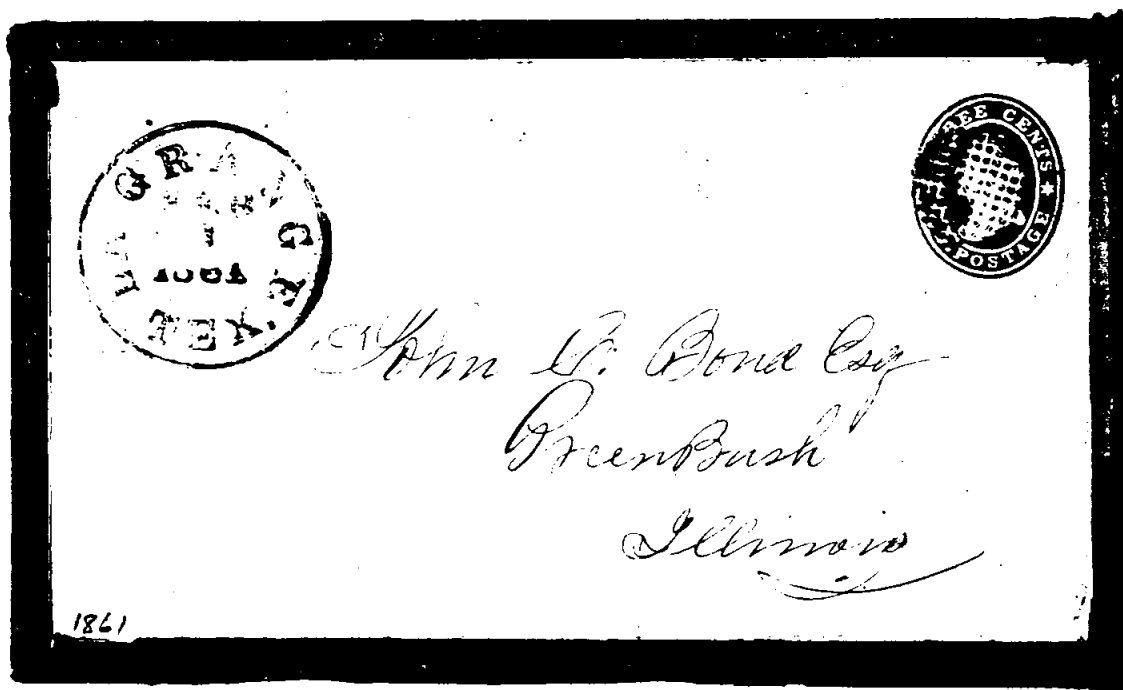 LA GRANGE
1861
TEX.
THREE CENTS * U.S. POSTAGE
John C. Bond Esq
GreenBush
Illinois
1861